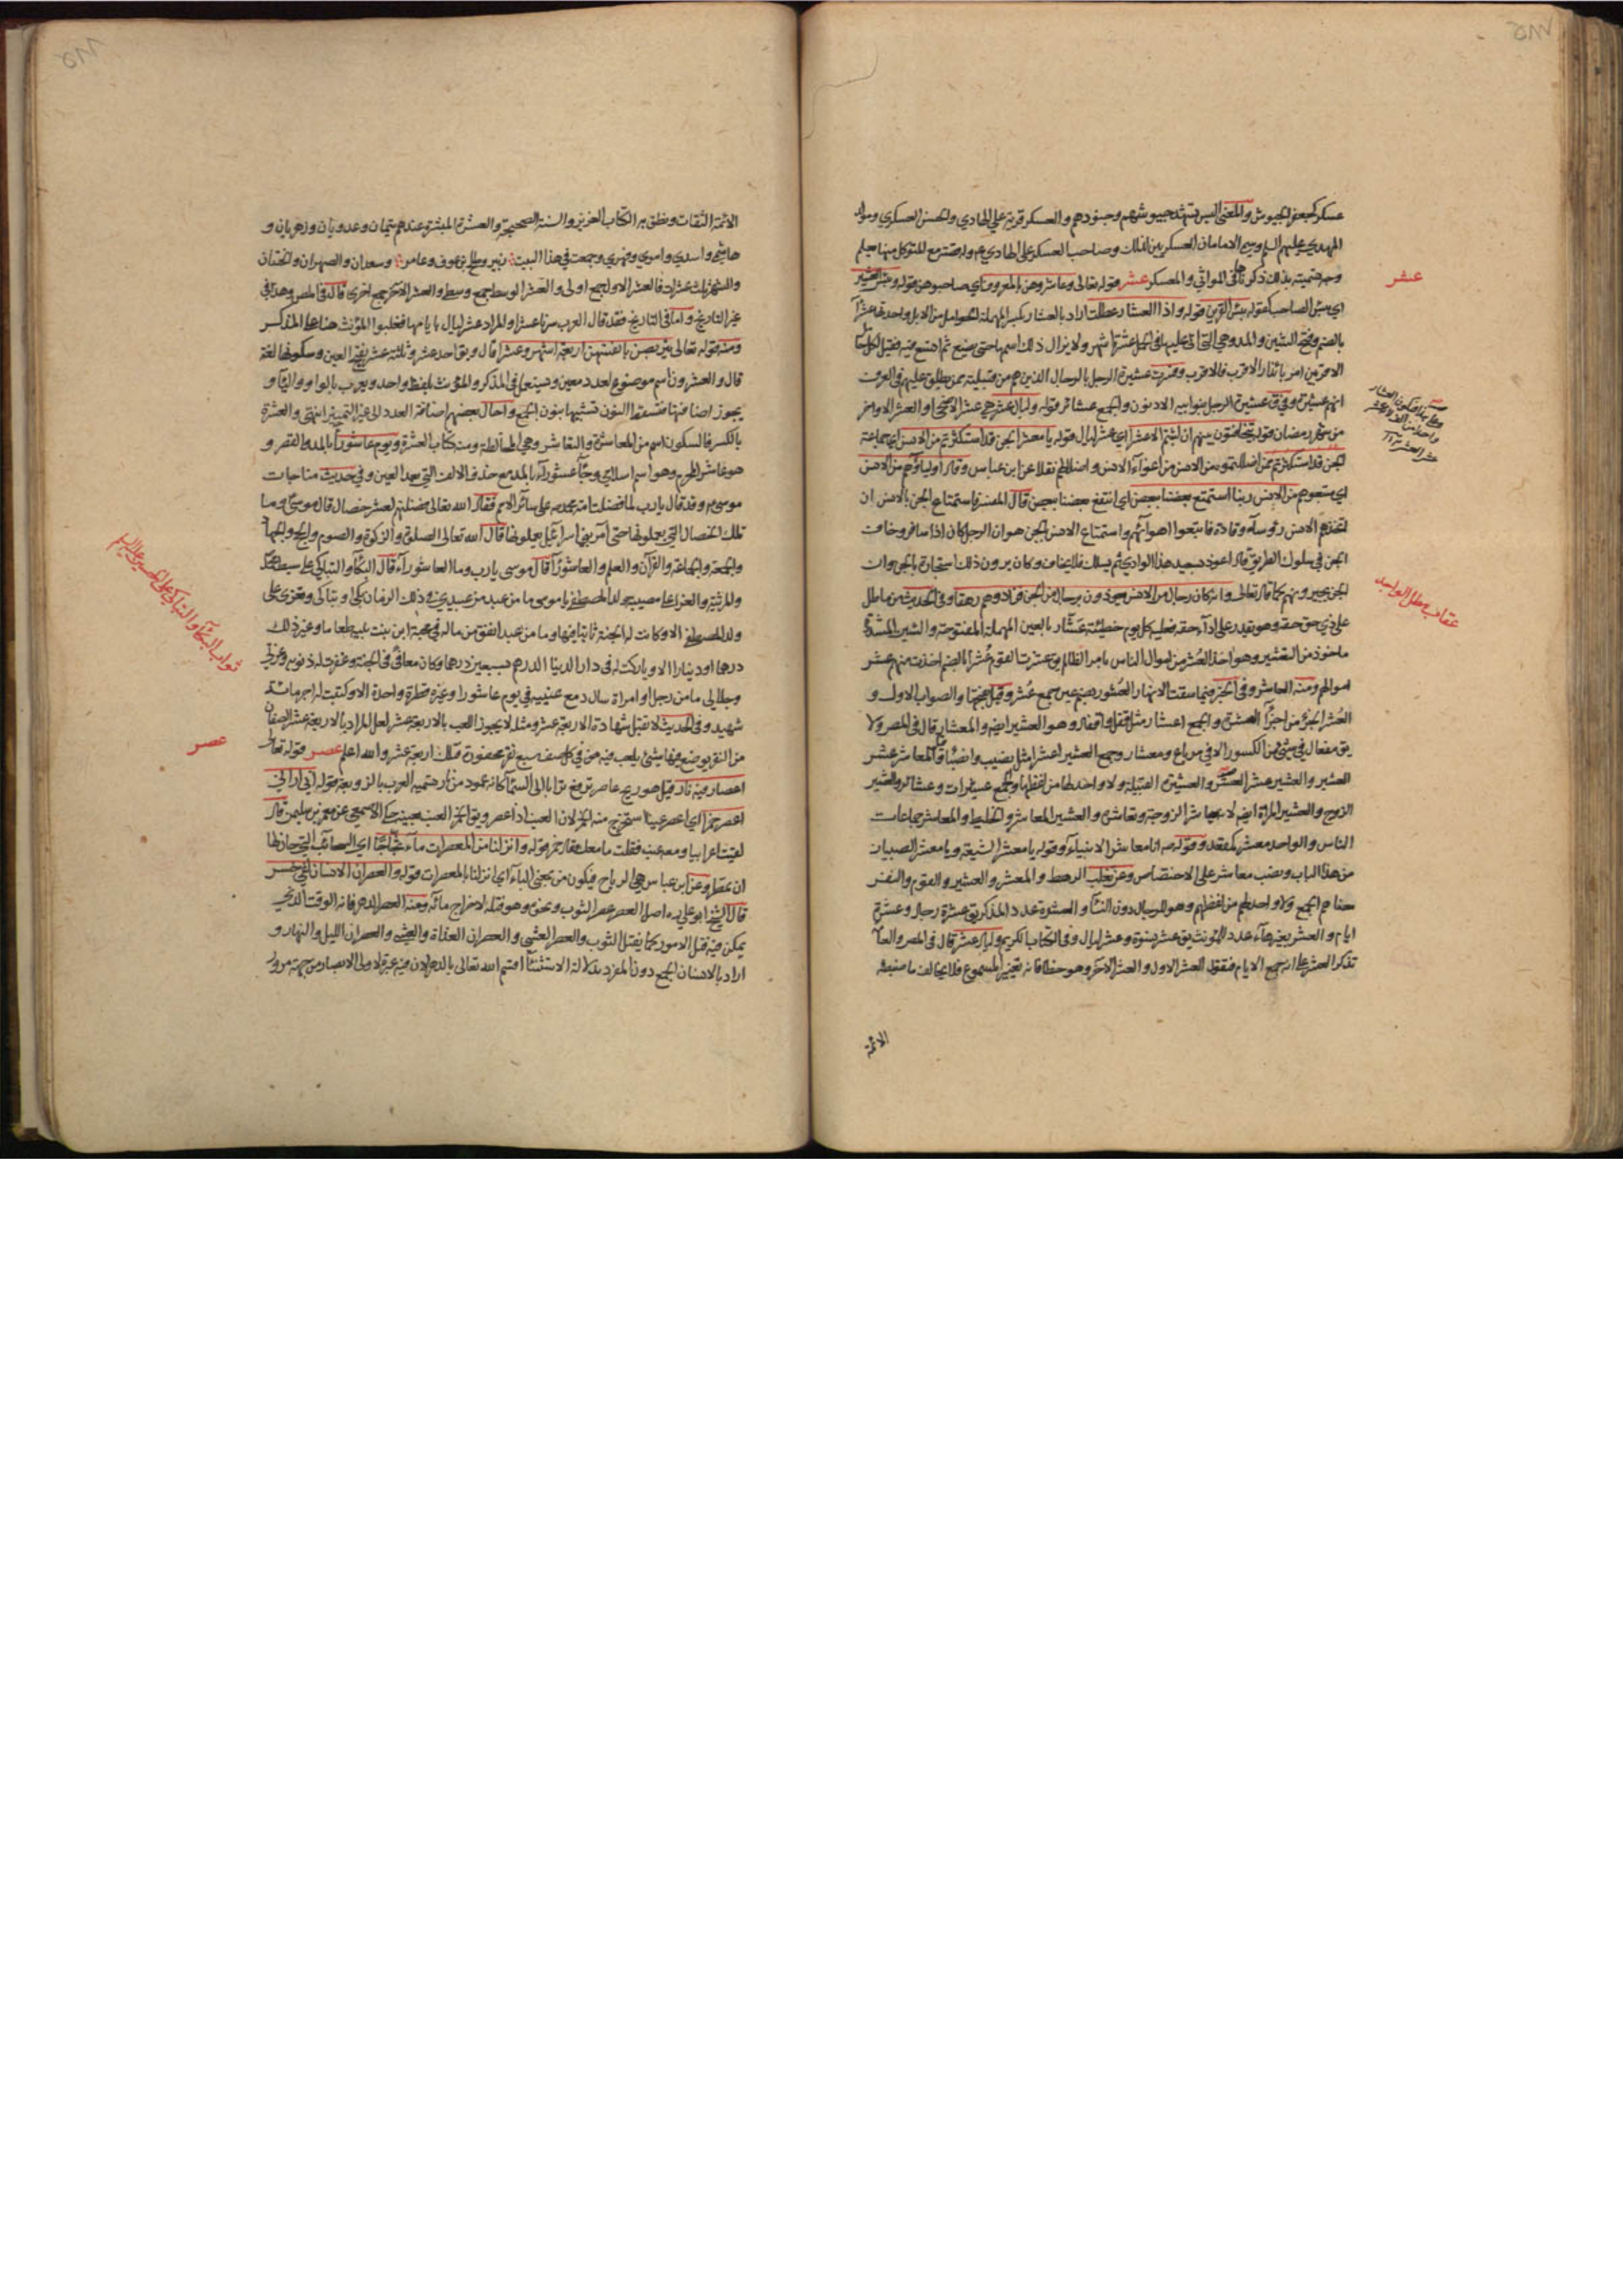 عسكر كجعفر الجيوش والمعنى اليس تشهد جيوشهم وجنودهم والعسكر قرية علي الهادي والحسن العسكري ومولد
المهدي عليهم السلم وسمي الامامان العسكريين لذلك وصاحب العسكر علي الهادي
وجه تسميته بذلك ذكرناها في المواثي والمعسكر عشر قوله تعالى وعاشروهن بالمعروف اي صاحبوهن قوله وبئس العشير
اي بئس الصاحب كقوله بئس القرين قوله واذا العشار عطلت اراد بالعشار بكسر المهملة الحوامل من الابل واحدتها عشرآ
بالضم وفتح الشين والمد وهي التي اتى عليها في الحمل عشرة اشهر ولا يزال ذلك اسمها حتى يضع ثم اتسع فيه فقيل لكل حامل
الاقربين امر بانذار الاقرب فالاقرب وفسرت عشيرة الرجل بالرجال الذين هم من قبيلته ممن يطلق عليهم في العرف
انهم عشيرته وفي ق عشيرة الرجل بنو ابيه الادنون والجمع عشائر قوله وليال عشر هي عشر الاضحى او العشر الاواخر
من شهر رمضان قوله يتخافتون بينهم ان لبثتم الا عشرا اي عشر ليال قوله يا معشر الجن قد استكثرتم من الانس اي جماعة
الجن قد استكثرتم ممن اضللتموه من الانس من اغوآء الانس واضلالهم نقلا عن ابن عباس وقال اولياؤهم من الانس
اي متبعوهم من الانس ربنا استمتع بعضنا ببعض اي انتفع بعضنا ببعض قال المفسر فاستمتاع الجن بالانس ان
اتخذهم الانس رؤسآء وقادة فاتبعوا اهوائهم واستمتاع الانس بالجن هو ان الرجل كان اذا سافر وخاف
الجن في سلوك الطريق قال اعوذ بسيد هذا الوادي ثم يسلك فلا يخاف وكان يرون ذلك استجارة بالجن وان
الجن يجيرونهم كما قال تعالى وانه كان رجال من الانس يعوذون برجال من الجن فزادوهم رهقا وفي الحديث من ماطل
على ذي حق حقه وهو يقدر على ادآء حقه فعليه كل يوم خطيئة عشّار بالعين المهملة المفتوحة والشين المشددة
ماخوذ من التعشير وهو اخذ العشر من اموال الناس بامر الظالم يق عشرت القوم عُشرا بالضم اخذت منهم عشر
اموالهم ومنه العاشر وفي الخبر فيما سقت الانهار العُشور بضم عين جمع عُشر وقيل بفتحها والصواب الاول و
العُشر الجزء من اجزآء العشرة والجمع اعشار مثل قفل واقفال وهو العشير ايضم والمعشار قال في المصر ولا
يق مفعال في شيء من الكسور الا في مرباع ومعشار وجمع العشير اعشرا مثل نصيب وانصبا
العشير والعشير عشر العشر والعشيرة القبيلة ولا واحد لها من لفظها والجمع عشيرات وعشائر والعشير
الزوج والعشير المراة ايضم لانه يعاشر الزوجة وتعاشره والعشير المعاشر والخليط والمعاشر جماعات
الناس والواحد معشر كمقعد وقوله ص انا معاشر الانبياء وقوله يا معشر الشيعة ويا معشر الصبيان
من هذا الباب ونصب معاشر على الاختصاص وعن ثعلب الرهط والمعشر والعشير والقوم والنفر
معناهم الجمع ولا واحد لهم من لفظهم وهو للرجال دون النسآ والعشرة عدد المذكر يق عشرة رجال وعشرة
ايام والعشر بغير هآء عدد المؤنث يق عشر نسوة وعشر ليال وفي الكتاب الكريم وليال عشر قال في المصر والعامة
تذكر العشر على انه جمع الايام فيقول العشر الاول والعشر الاخر وهو خطا فانه تغيير المسموع فلا يخالف ما ضبطه
الائمة
عشر
عقاب مطل الواجد
الائمة الثقات ونطق به الكتاب العزيز والسنة الصحيحة والعشرة المبشرة عندهم تيميان وعدويان وزهريان و
هاشمي واسدي واموي وفهري وجمعت في هذا البيت زبير وطلح بن عوف وعامر وسعدان والصهران والختنان
والشهر ثلث عشرات فالعشر الاول جمع اولى والعشر الوسط جمع وسطى والعشر الاخر جمع اخرى قال في المصر وهذا في
غير التاريخ واما في التاريخ فقد قال العرب سرنا عشرا والمراد عشر ليال بايامها فغلبوا المؤنث هنا على المذكر
ومنه قوله تعالى يتربصن بانفسهن اربعة اشهر وعشرا قال ويق احد عشر وثلثة عشر بفتح العين وسكونها لغة
قال والعشرون اسم موضوع لعدد معين ويستعمل في المذكر والمؤنث بلفظ واحد ويعرب بالواو واليآء و
يجوز اضافتها فتسقط النون تشبيها بنون الجمع واحال بعضهم اضافة العدد الى غير التمييز انتهى والعشرة
بالكسر فالسكون اسم من المعاشرة والتعاشر وهي المخالطة ومنه كتاب العشرة ويوم عاشورآ بالمد والقصر و
هو عاشر المحرم وهو اسم اسلامي وجآء عشورآء بالمد مع حذف الالف التي بعد العين وفي حديث مناجات
موسى ع وقد قال يا رب لم فضلت امة محمد ص على سائر الامم فقال الله تعالى فضلتهم لعشر خصال قال موسى وما
تلك الخصال التي يعملونها حتى آمر بني اسرآئيل يعملونها قال الله تعالى الصلوة والزكوة والصوم والحج والجهاد
والجمعة والجماعة والقرآن والعلم والعاشورآ قال موسى يا رب وما العاشورآء قال البكآ والتباكي على سبط محمد
والمرثية والعزا على مصيبة ولد المصطفى يا موسى ما من عبد من عبيدي في ذلك الزمان بكى او تباكى وتعزى على
ولد المصطفى الا وكانت له الجنة ثابتا فيها وما من عبد انفق من ماله في محبة ابن بنت نبيه طعاما وغير ذلك
درهما او دينارا الا وباركت له في دار الدنيا الدرهم بسبعين درهما وكان معافى في الجنة وغفرت له ذنوبه وعزتي
وجلالي ما من رجل او امراة سال دمع عينيه في يوم عاشورا وغيره قطرة واحدة الا وكتبت له اجر مائة
شهيد وفي الحديث لا تقبل شهادة الاربعة عشر ومثله لا يجوز اللعب بالاربعة عشر لعل المراد بالاربعة عشر الصفان
من النقر يوضع فيها شيء يلعب فيه من في كل صف سبع نقر محفورة فتلك اربعة عشر والله اعلم عصر قوله تعالى
اعصار فيه نار قيل هو ريح عاصر ترفع ترابا الى السمآ كانه عمود من نار تسميه العرب بالزوبعة قوله اني اراني
اعصر خمرا اي اعصر عنبا استخرج منه الخمر لان العنب اذا عصر ويق الخمر العنب بعينه حكى الاصمعي عن معمر بن سليمن قال
لقيت اعرابيا ومعه عنب فقلت ما معك فقال خمر قوله وانزلنا من المعصرات مآء ثجاجا اي السحائب التي حان لها
ان تمطر وعن ابن عباس هي الرياح فيكون من بمعنى البآء اي انزلنا بالمعصرات قوله والعصر ان الانسان لفي خسر
قال الشيخ ابو علي ره اصل العصر عصر الثوب ونحوه وهو فتله لاخراج مائه ومنه العصر الدهر فانه الوقت الذي
يمكن فيه فتل الامور كما يفتل الثوب والعصر العشي والعصران الغداة والعشي والعصران الليل والنهار و
اراد بالانسان الجمع دون المفرد بدلالة الاستثنآ اقسم الله تعالى بالدهر لان فيه عبرة لاولي الابصار من جهة مرور
ثواب البكآء والتباكي على الحسين عليه السلم
عصر